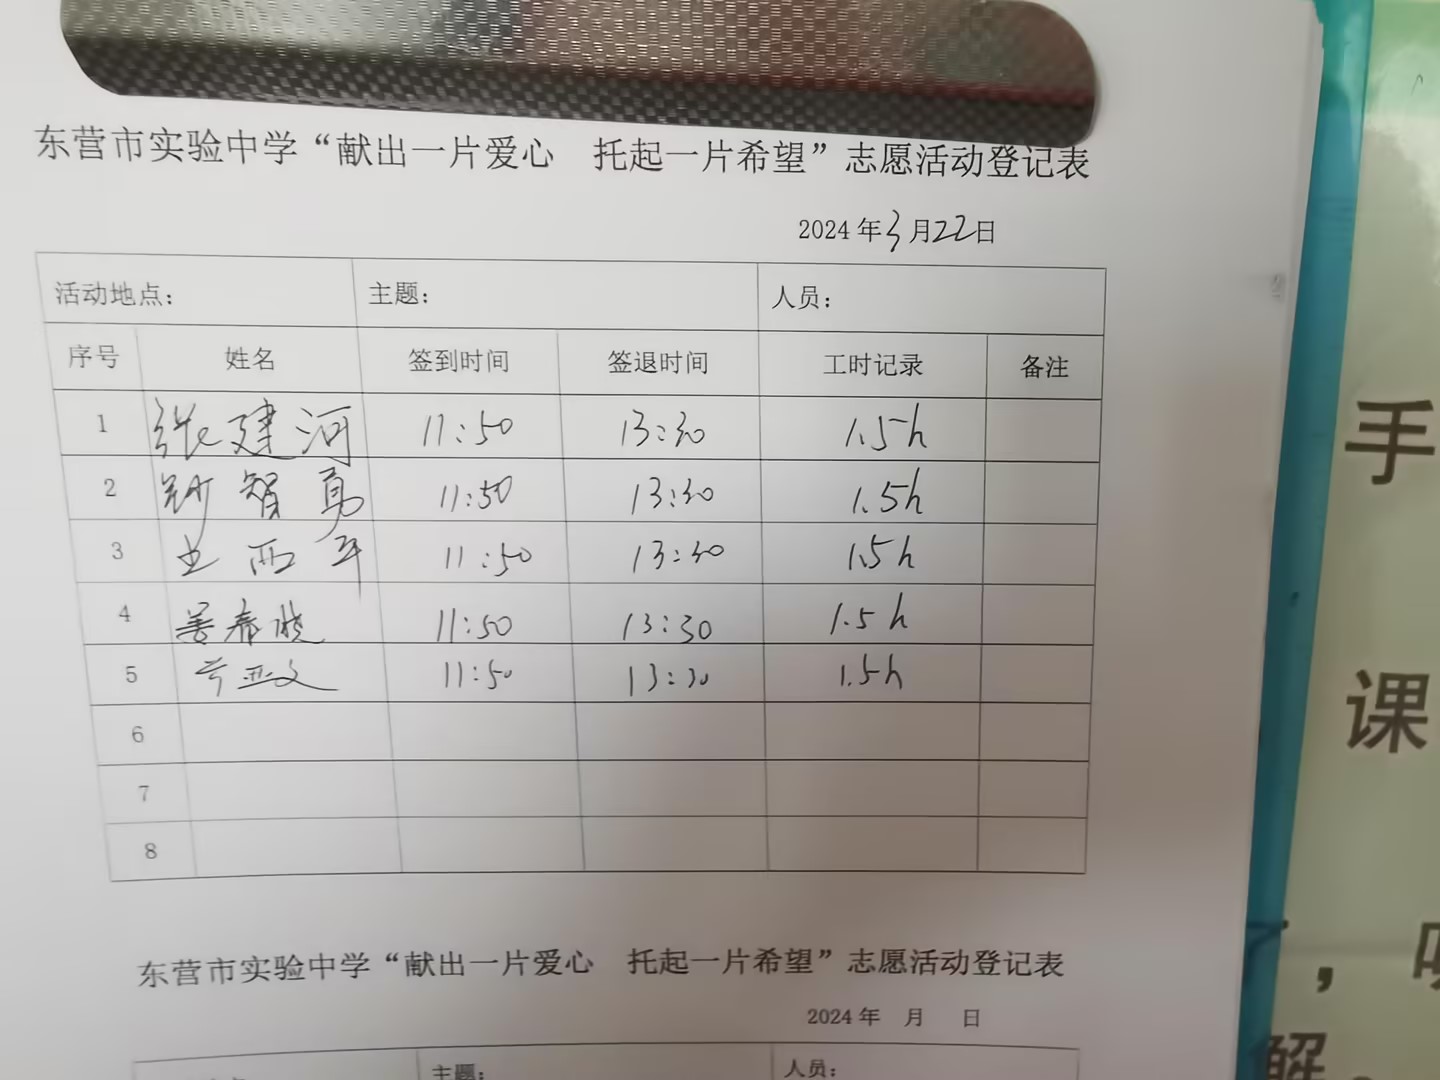 东营市实验中学“献出一片爱心 托起一片希望”志愿活动登记表
2024年3月22日
活动地点： 主题： 人员：
序号 姓名 签到时间 签退时间 工时记录 备注
1 张建河 11:50 13:30 1.5h
2 智勇 11:50 13:30 1.5h
3 西平 11:50 13:30 1.5h
4 姜春晓 11:50 13:30 1.5h
5 亚文 11:50 13:30 1.5h
6
7
8
东营市实验中学“献出一片爱心 托起一片希望”志愿活动登记表
2024年 月 日
主题： 人员：
手
课
，
解